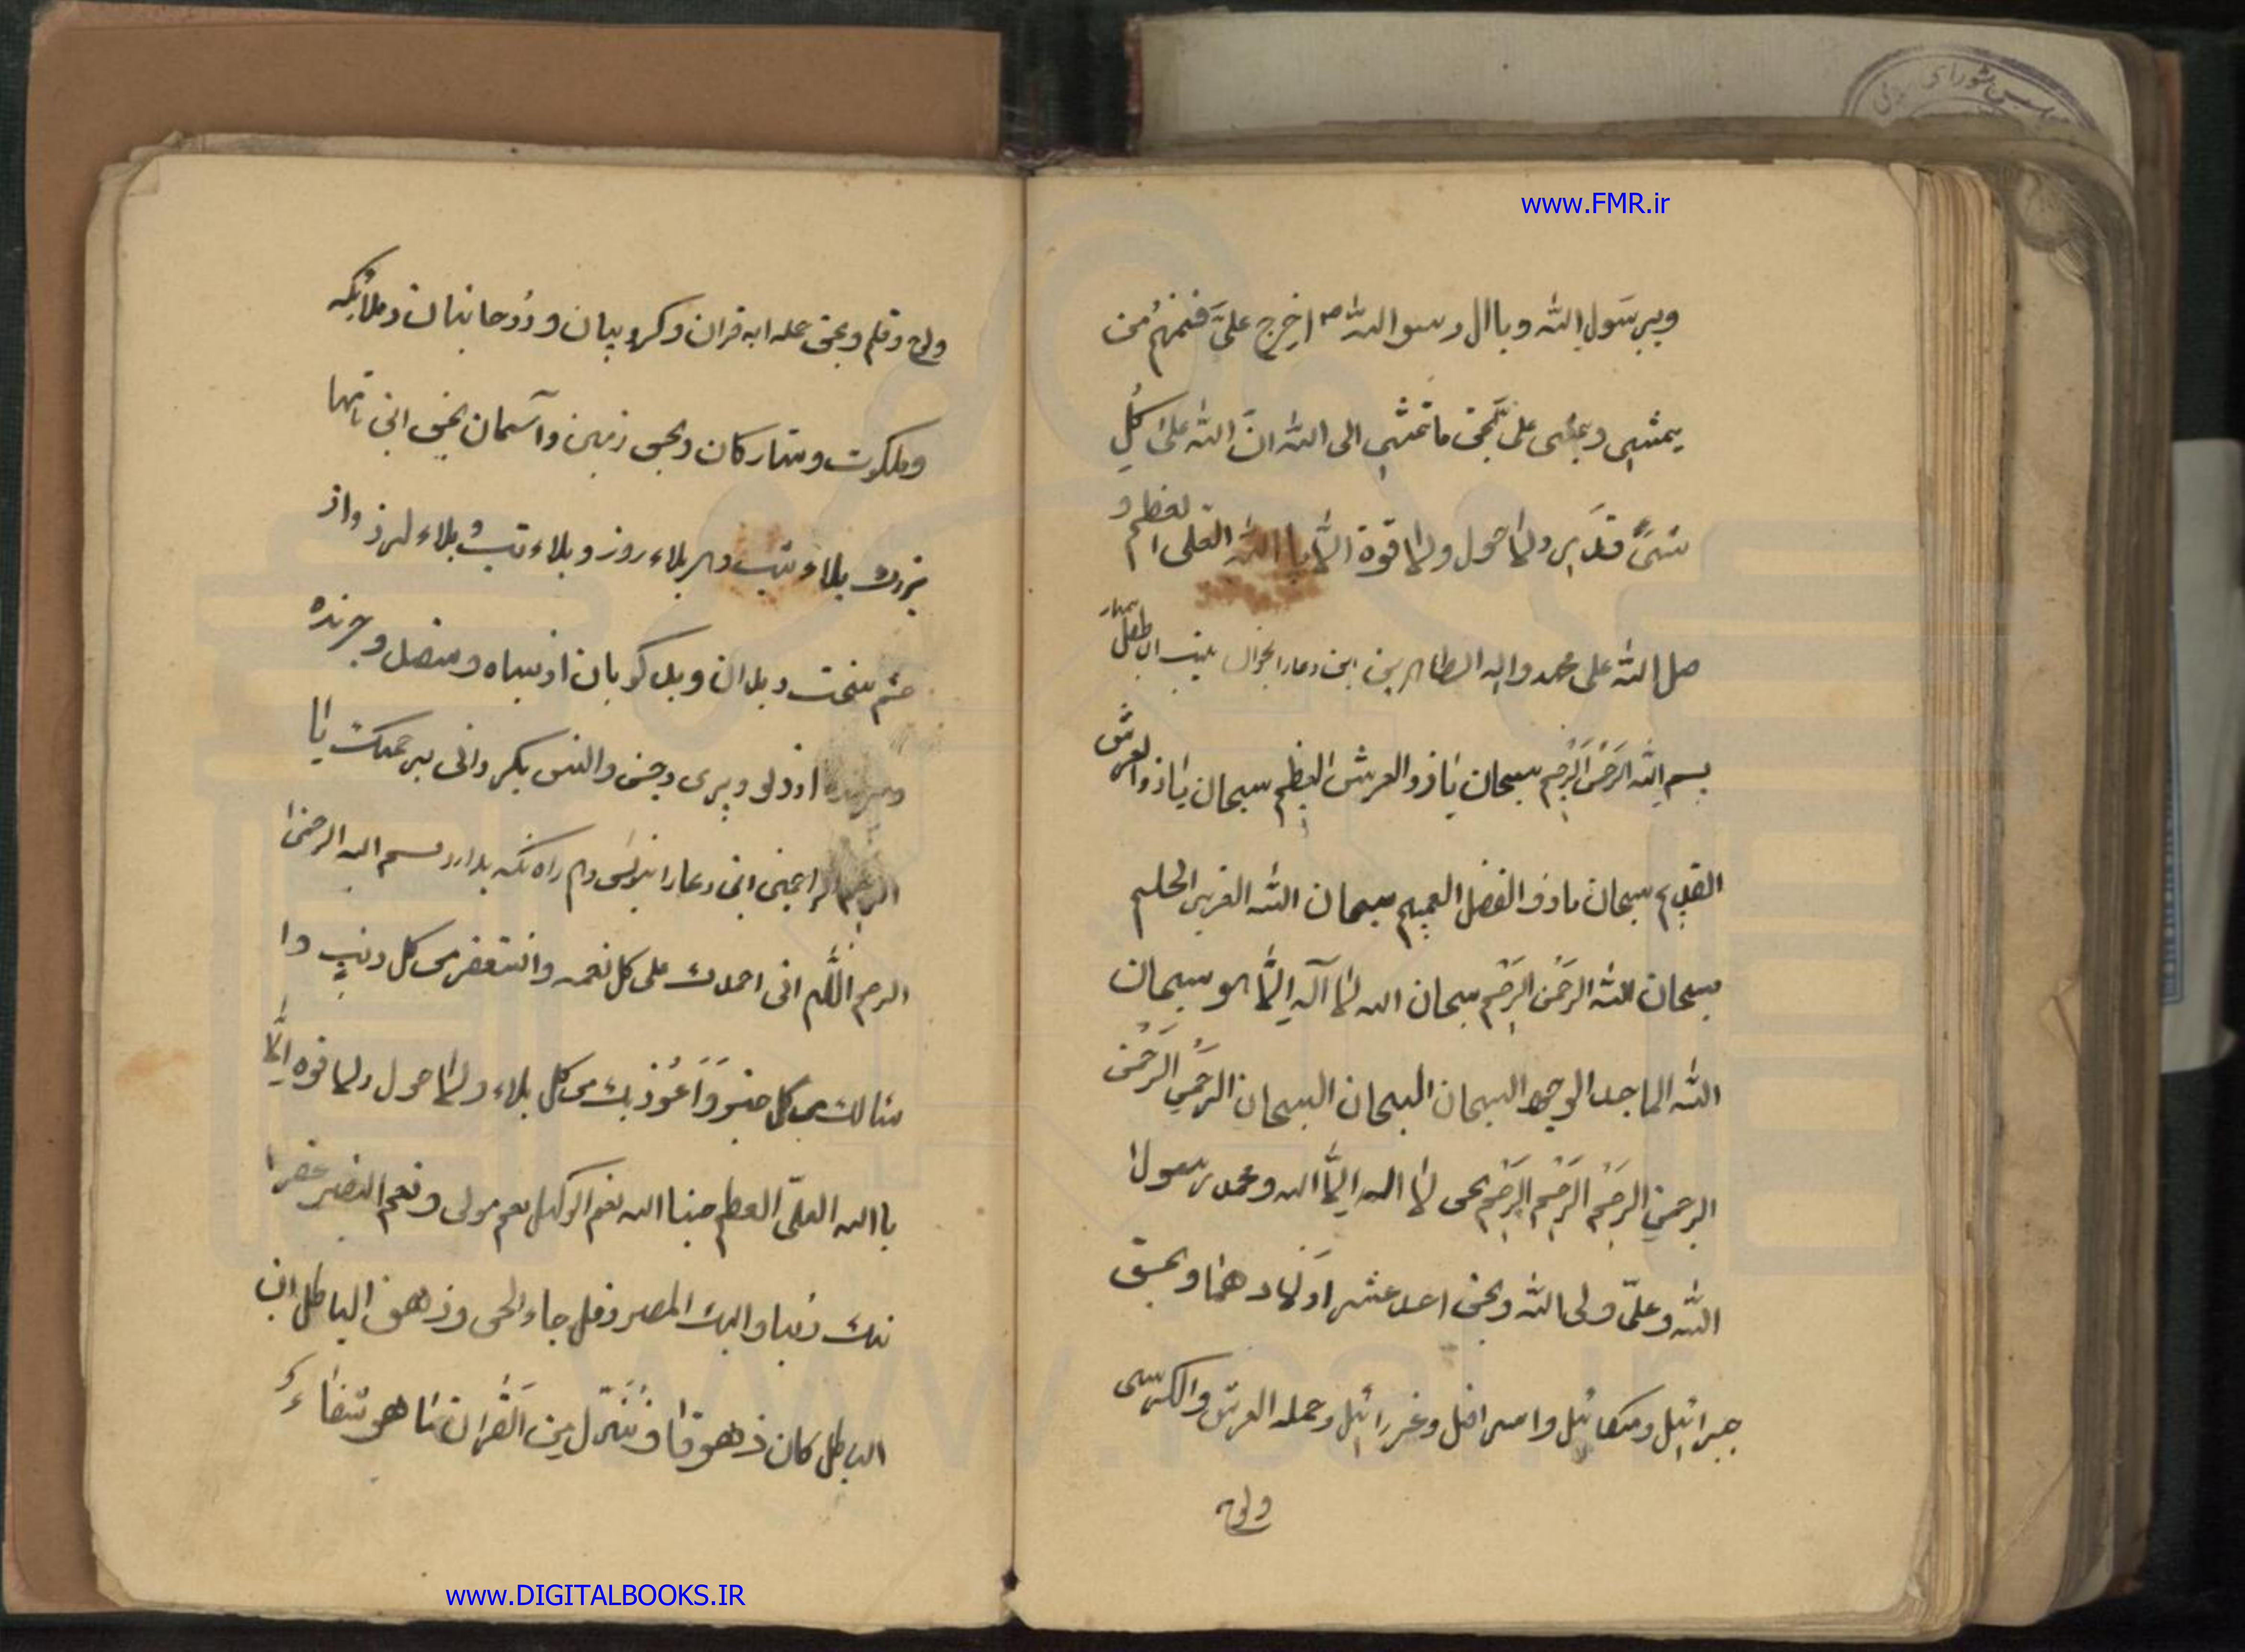 www.FMR.ir
وبرسول الله وباال رسوالله ص اخرج علی فمنهم من
یمشی و علی بحق ما تمشی الی الله ان الله علی کل
شیء قدیر ولا حول ولا قوة الا باالله العلی العظیم و
صل الله علی محمد واله الطاهرین این دعا را بخواند طفل بیمار
بسم الله الرحمن الرحیم سبحان یا ذو العرش العظیم سبحان یا ذو العرش
القدیم سبحان یا ذو الفضل العمیم سبحان الله العزیز الحلیم
سبحان الله الرحمن الرحیم سبحان الله لا آله الا هو سبحان
الله الماجد السبحان السبحان السبحان الرحمن الرحمن
الرحمن الرحیم الرحیم الرحیم بحق لا اله الا الله و محمد رسول
الله و علی ولی الله و بحق احد عشر اولادهما و بحق
جبرائیل و میکائیل و اسرافیل و عزرائیل و حمله العرش والکرسی
ولوح
ولوح و قلم و بحق جمله ایه قران و کروبیان و روحانیان و ملائکه
و ملکوت و ستارکان و بحق زمین و آسمان بحق این نامها
بزرك بلاء شب و بلاء روز و بلاء تب و بلاء لرز و از
چشم سخت و بدان و بد کویان از سیاه و و چرنده
از دیو و پری و جن و انس بکردانی برحمتك یا
ارحم الراحمین این دعا را بنویسی و همراه نکه بدارد بسم الله الرحمن
الرحیم اللهم انی احمدك علی کل نعمه و استغفر من کل ذنب وا
سالك من کل خیر و اعوذ بك من کل بلاء ولا حول ولا قوه الا
باالله العلی العظیم حسبنا الله نعم الوکیل نعم مولی و نعم النصیر غفرا
نك ربنا والیك المصیر و قل جاء الحق و زهق الباطل ان
الباطل کان ذهوقا و ننزل من القران ما هو شفاء و
www.DIGITALBOOKS.IR